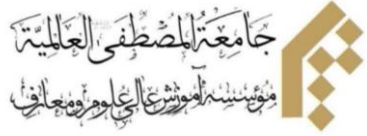 جَامِعَةُ المُصْطَفىٰ العَالَمِیَّة
مؤسسه آموزش عالی علوم و معارف